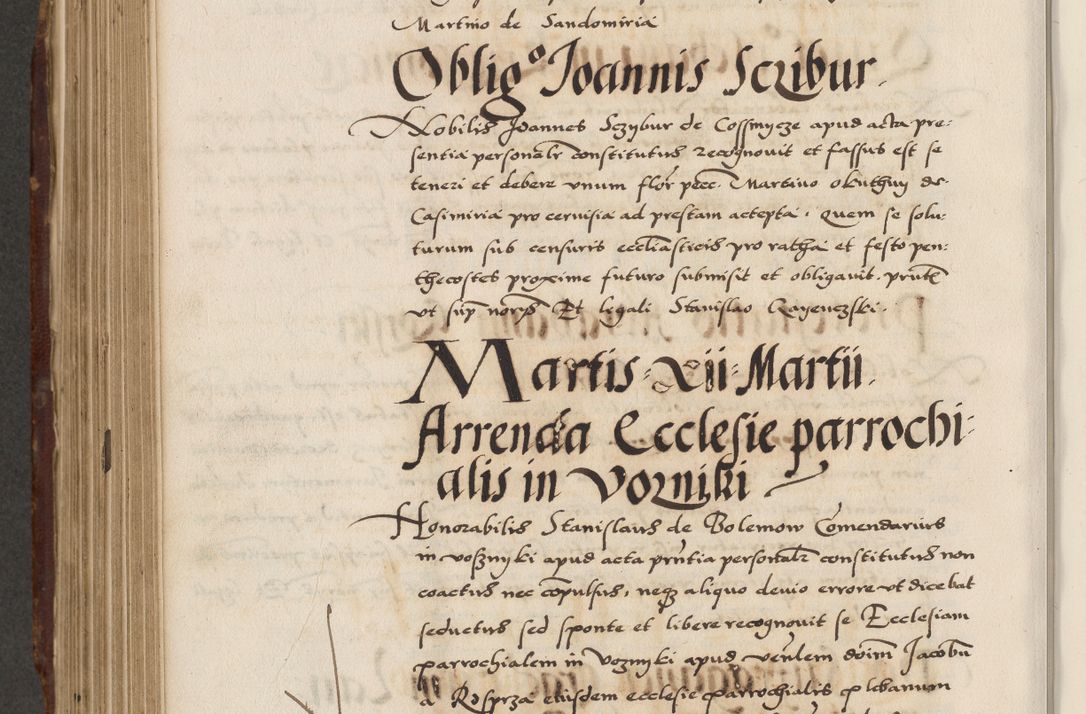 Martino de Sandomiria
Oblig.º Joannis Sczibur.
Nobilis Joannes Sczybur de Cossmycze apud acta pre:
sentia personalr constitutus recognouit et fassus est se
teneri et debere vnum flor pecc. Martino
Casimiria pro ceruisia ad prestam accepta. Quem se solu:
turum sub censuris eccliasticis pro ratha et festo pen:
thecostes proxime futuro submisit et obligauit. pntt
vt sup Et legali Stanislao
Martis · Xii · Martii.
Arrenda Ecclesie parrochi:
alis in Vozniki
Honorabilis Stanislaus de Bolemow Comendarius
in voszniki apud acta pntia personalr constitutus non
coactus nec compulsus, neqz aliquo deuio errore vt dicebat
seductus sed sponte et libere recognouit se Ecclesiam
parrochialem in Vozniki apud venlem doim Jacobu
a Rosprza eiusdem ecclesie parrochialis plebanum